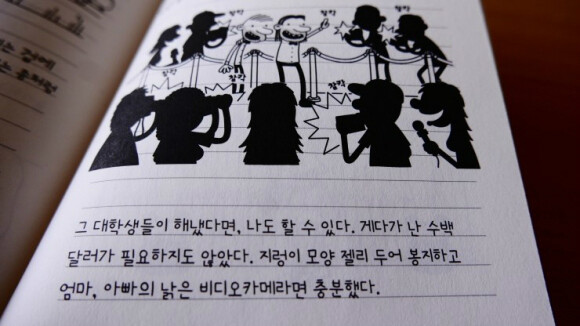 찰칵
찰칵
찰칵
찰칵
찰칵
그 대학생들이 해냈다면, 나도 할 수 있다. 게다가 난 수백
달러가 필요하지도 않았다. 지렁이 모양 젤리 두어 봉지하고
엄마, 아빠의 낡은 비디오카메라면 충분했다.